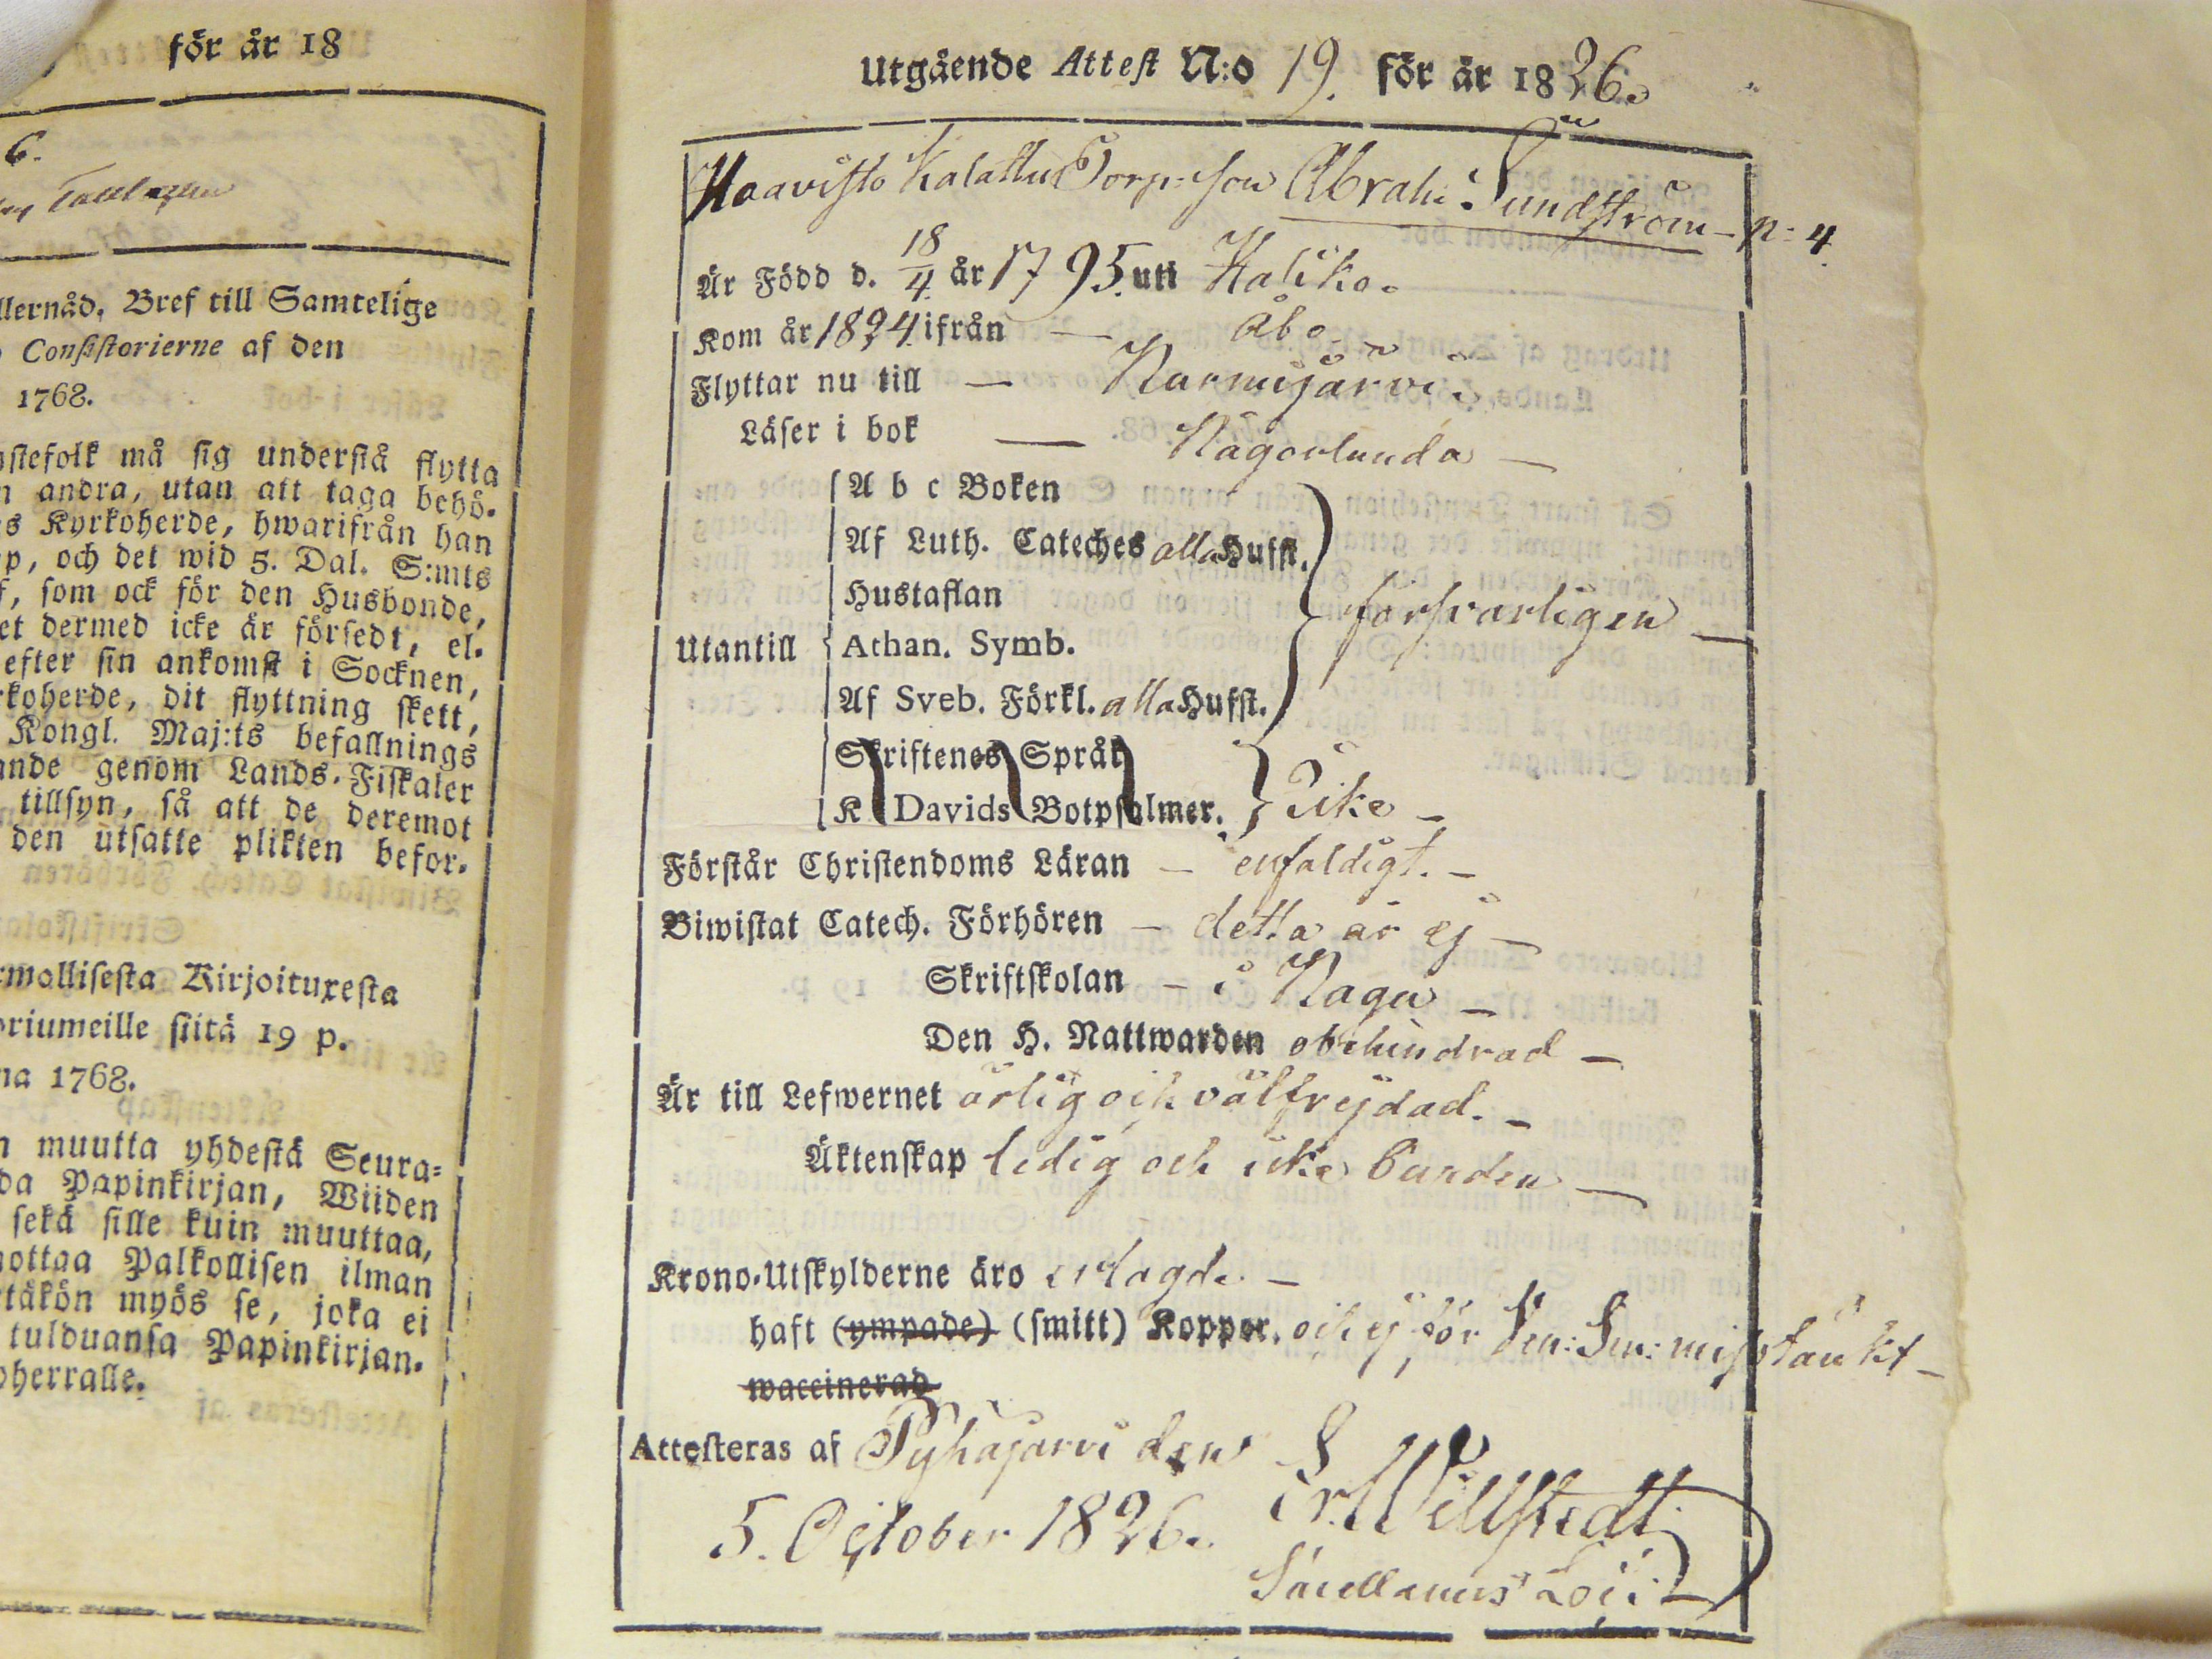 för år 18
6.
llernåd. Bref till Samtelige
Consistorierne af den
1768.
nstefolk må sig understå flytta
n andra, utan att taga behö-
s Kyrkoherde, hwarifrån han
p, och det wid 5. Dal. S:mts
f, som ock för den Husbonde,
et dermed icke är försedt, el-
efter sin ankomst i Socknen,
rkoherde, dit flyttning skett,
Kongl. Maj:ts befallnings
ande genom Lands-Fiskaler
tillsyn, så att de deremot
den utsatte plikten befor-
rmollisesta Kirjoituxesta
oriumeille siitä 19 p.
na 1768.
n muutta yhdestä Seura-
da Papinkirjan, Wiiden
sekä sille kuin muuttaa,
nottaa Palkollisen ilman
täkön myös se, joka ei
tulduansa Papinkirjan-
oherralle.
Utgående Attest N:o 19. för år 1826.
Haavisto Kalattu Torp: son Abrah: Sundström - p: 4
Är Född d. 18/4 år 1795. uti Haliko.
Kom år 1824 ifrån — Åbo
Flyttar nu till — Nurmijärvi
Läser i bok — Någorlunda —
A b c Boken
Af Luth. Cateches alla Hufst.
Hustaflan
försvarligen —
Utantill Athan. Symb.
Af Sveb. Förkl. alla Hufst.
Skriftenes Språk
K Davids Botpsalmer. icke —
Förstår Christendoms Läran — enfaldigt. —
Biwistat Catech. Förhören — detta år ej —
Skriftskolan — i Nagu —
Den H. Nattwarden obehindrad —
Är till Lefwernet ärlig och välfrejdad. —
Äktenskap ledig och icke bunden —
Krono-Utskylderne äro erlagde. —
haft (ympade) (smitt) Koppor. och ej för Ven: Sm: misstänkt —
waccinerad
Attesteras af Pyhäjärvi den
5. October 1826. Er. Willstedt
Sacellanus Loci.